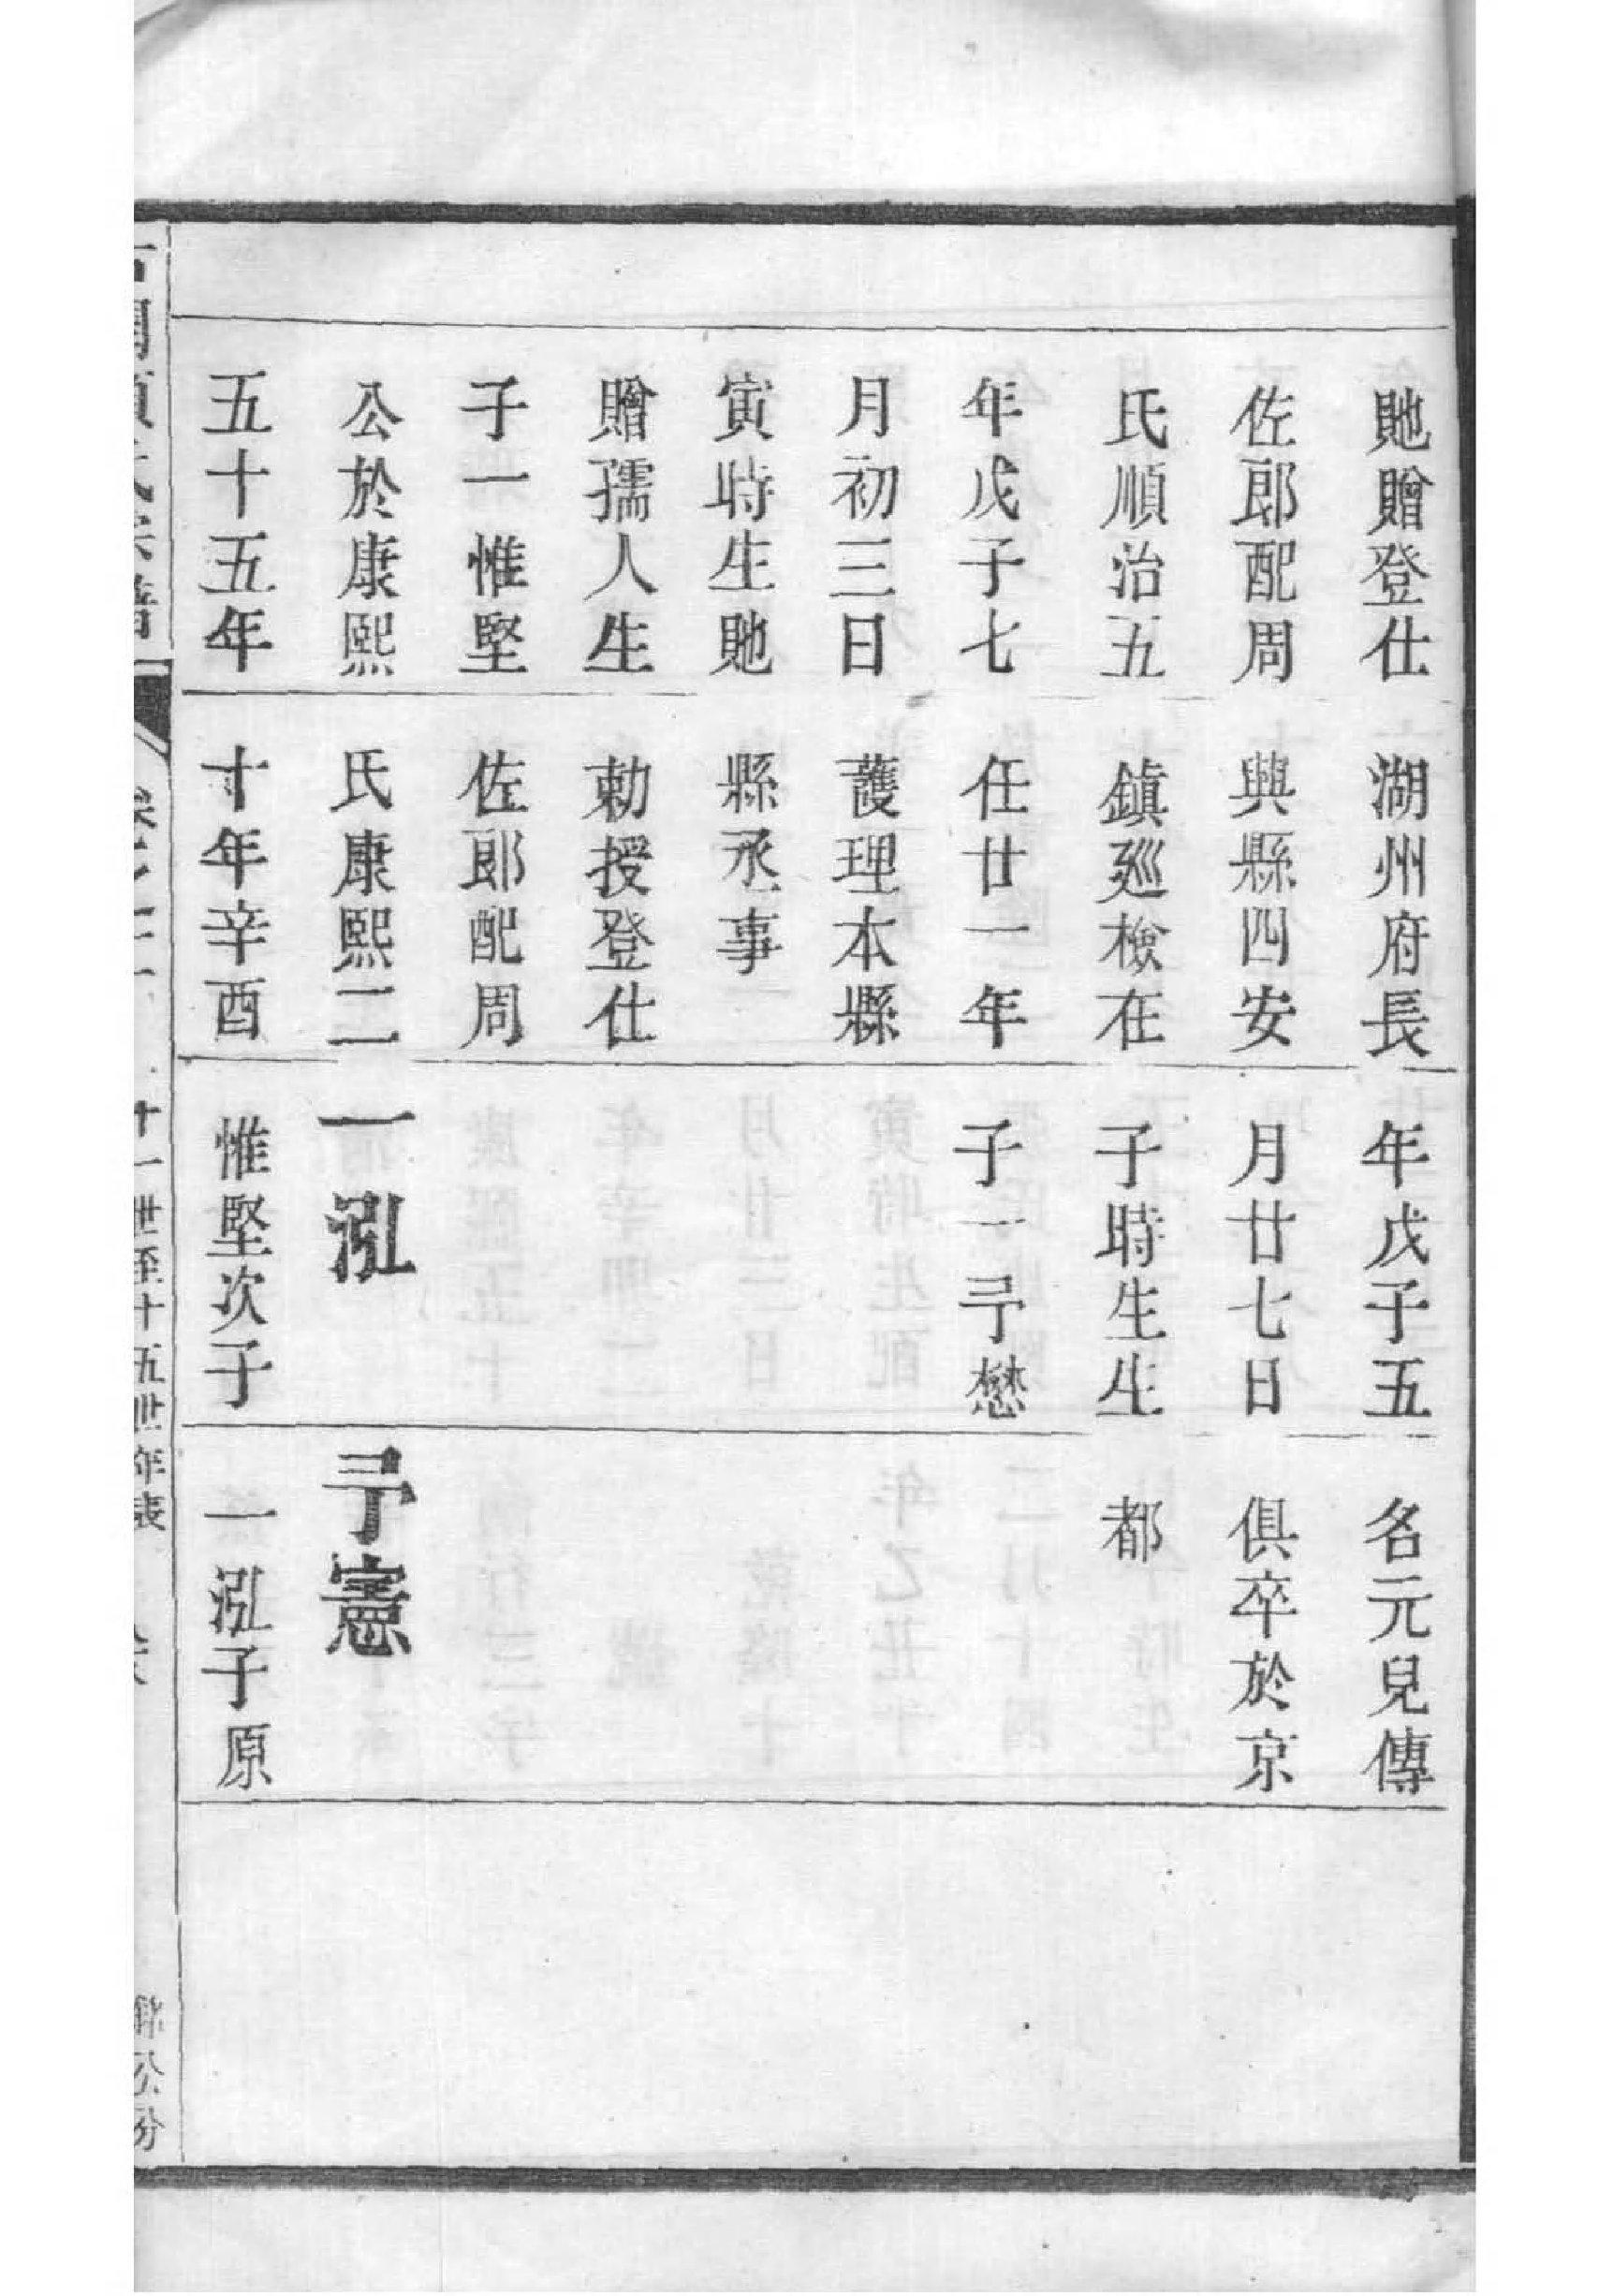 貤贈登仕
佐郎配周
氏順治五
年戊子七
月初三日
寅時生貤
贈孺人生
子一惟堅
公於康熙
五十五年
湖州府長
興縣四安
鎮廵檢在
任廿一年
護理本縣
縣丞事
勅授登仕
佐郎配周
氏康熙二
十年辛酉
年戊子五
月廿七日
子時生生
子一寽懋
一泓
惟堅次子
名元兒傳
俱卒於京
都
寽憲
一泓子原
十一世至十五世年表